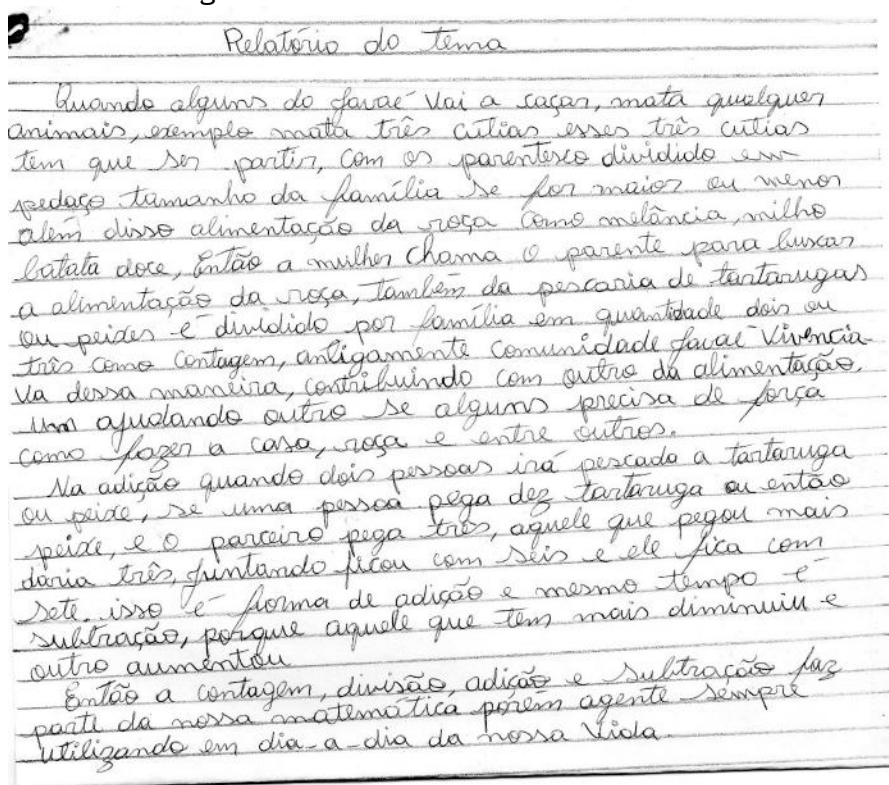 Relatório do tema
Quando alguns do Javaé Vai a caçar, mata qualquer
animais, exemplo mata três cutias esses três cutias
tem que ser partir, com os parentesco dividido em
pedaço tamanho da família se for maior ou menor
além disso alimentação da roça como melância, milho
batata doce, Então a mulher chama o parente para buscar
a alimentação da roça, também da pescaria de tartarugas
ou peixes é dividido por família em quantidade dois ou
três como contagem, antigamente comunidade Javaé Vivencia-
va dessa maneira, contribuindo com outro da alimentação.
um ajudando outro se alguns precisa de força
como fazer a casa, roça e entre outros.
Na adição quando dois pessoas irá pescado a tartaruga
ou peixe, se uma pessoa pega dez tartaruga ou então
peixe, e o parceiro pega três, aquele que pegou mais
daria três, juntando ficou com seis e ele fica com
sete. isso é forma de adição e mesmo tempo é
subtração, porque aquele que tem mais diminuiu e
outro aumentou
Então a contagem, divisão, adição e subtração faz
parte da nossa matemática porém agente sempre
utilizando em dia-a-dia da nossa Vida.